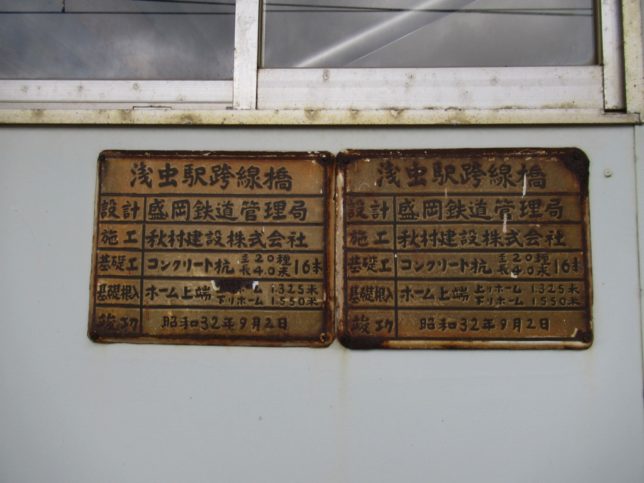 浅虫駅跨線橋
設計 盛岡鉄道管理局
施工 秋村建設株式会社
基礎工 コンクリート杭 径20糎 長4.0米 16本
基礎根入 ホーム上端 上リホーム 1.325米 下リホーム 1.550米
竣功 昭和32年9月2日
浅虫駅跨線橋
設計 盛岡鉄道管理局
施工 秋村建設株式会社
基礎工 コンクリート杭 径20糎 長4.0米 16本
基礎根入 ホーム上端 上リホーム 1.325米 下リホーム 1.550米
竣功 昭和32年9月2日